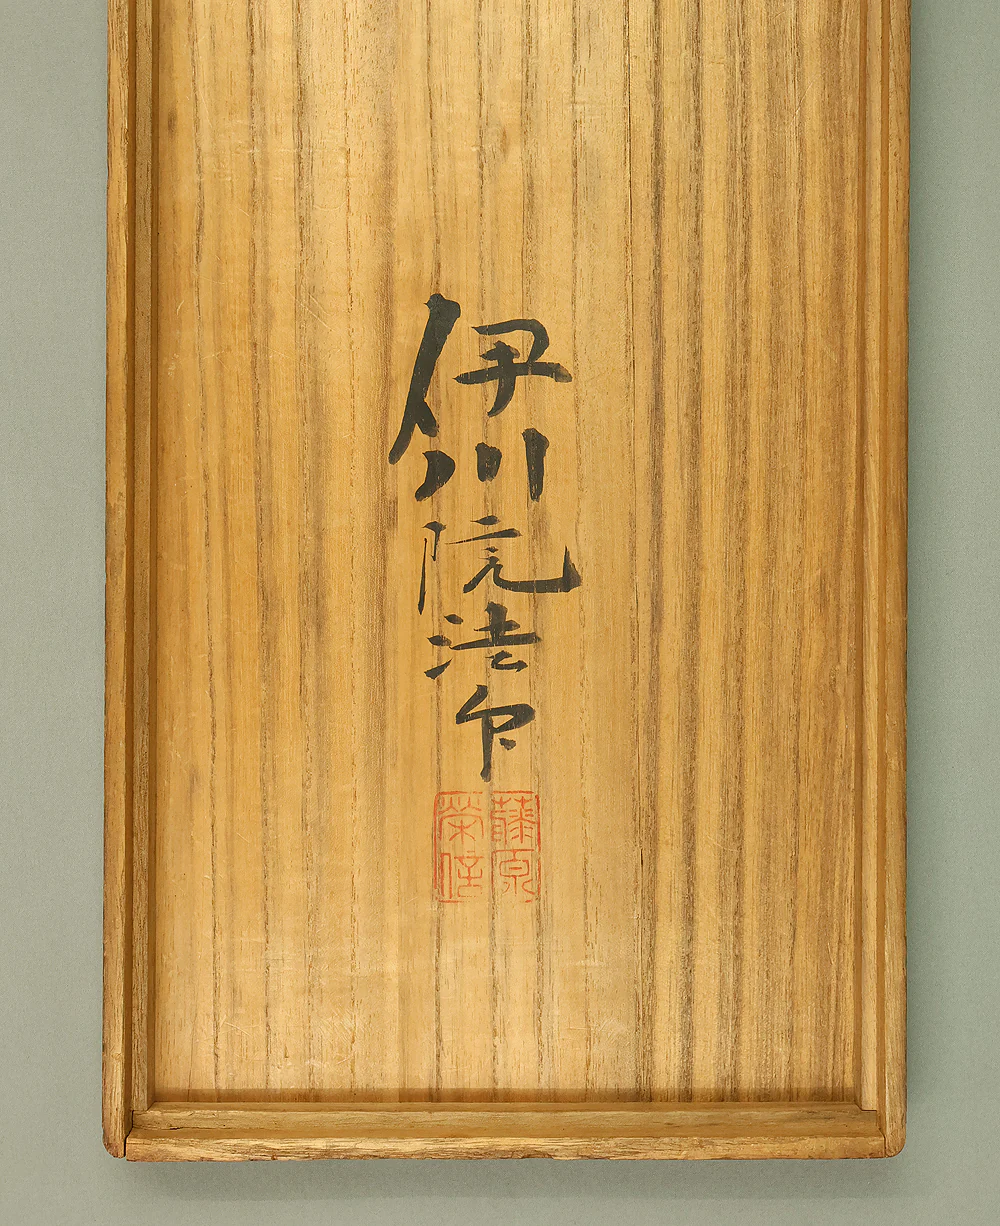 伊川院法印
藤原
栄信